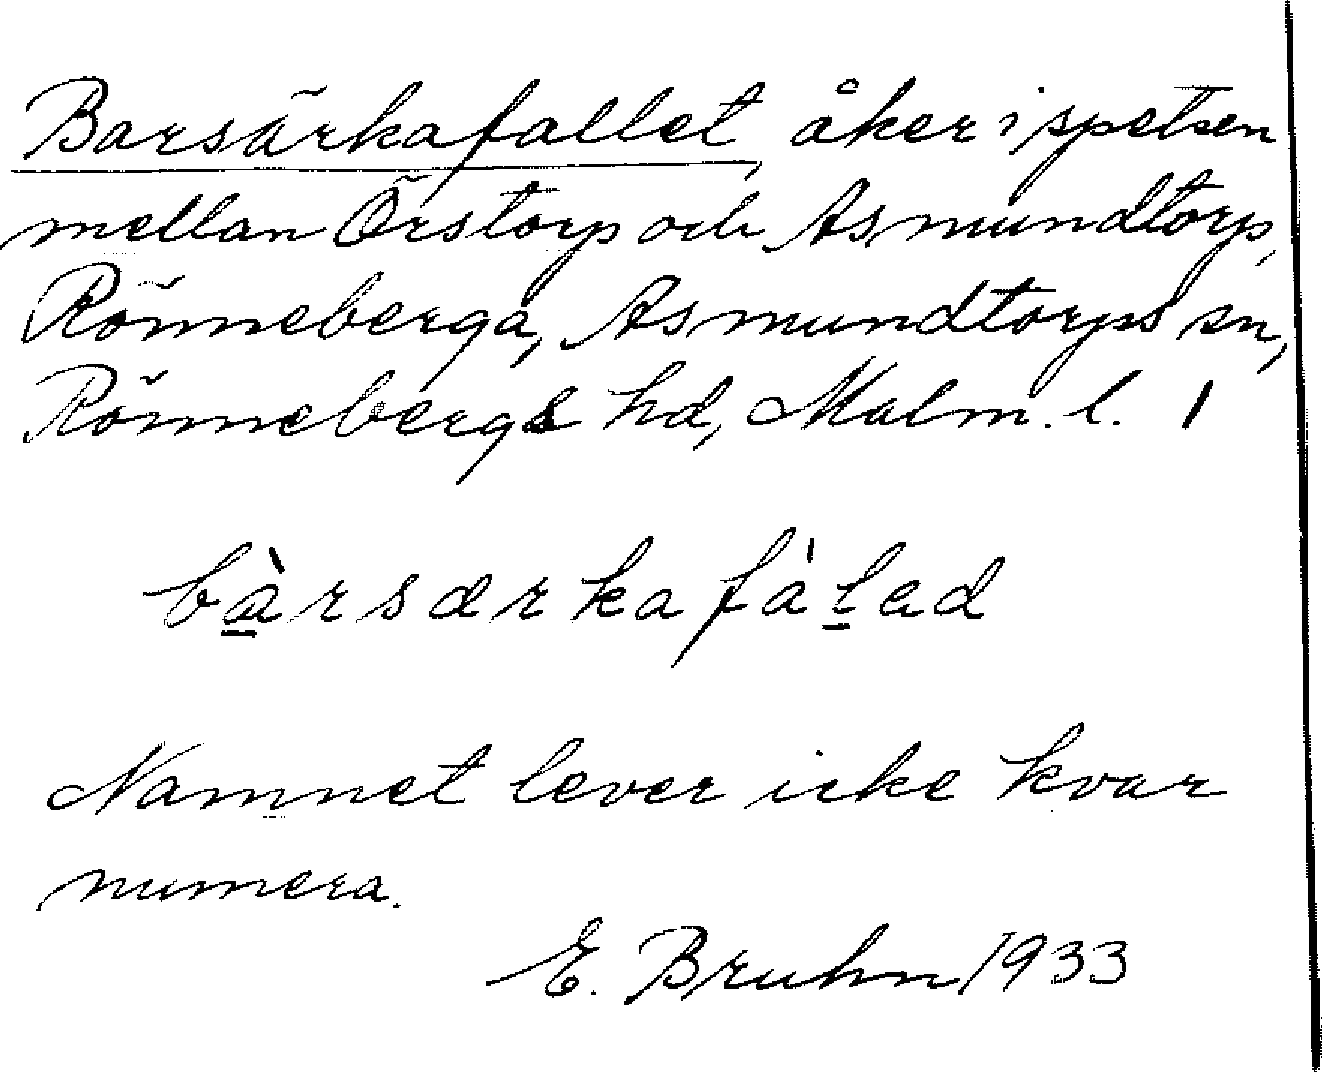 Barsärkafallet, åker i spetsen
mellan Örstorp och Asmundtorp,
Rönneberga, Asmundtorps sn,
Rönnebergs hd, Malm. l. 1
bàrsærkafálad
Namnet lever icke kvar
numera.
E. Bruhn 1933